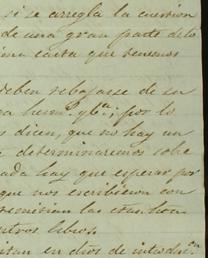 si se arregla la cuestion
de una gran parte de lo
ima carta que tenemos
deben rebajarse de su
por lo
s dicen, que no hay un
determinaremos sobe
ada hay que esperar por
que nos escribieron con
remitian las
ntros libros.
itan en dros de introdon.